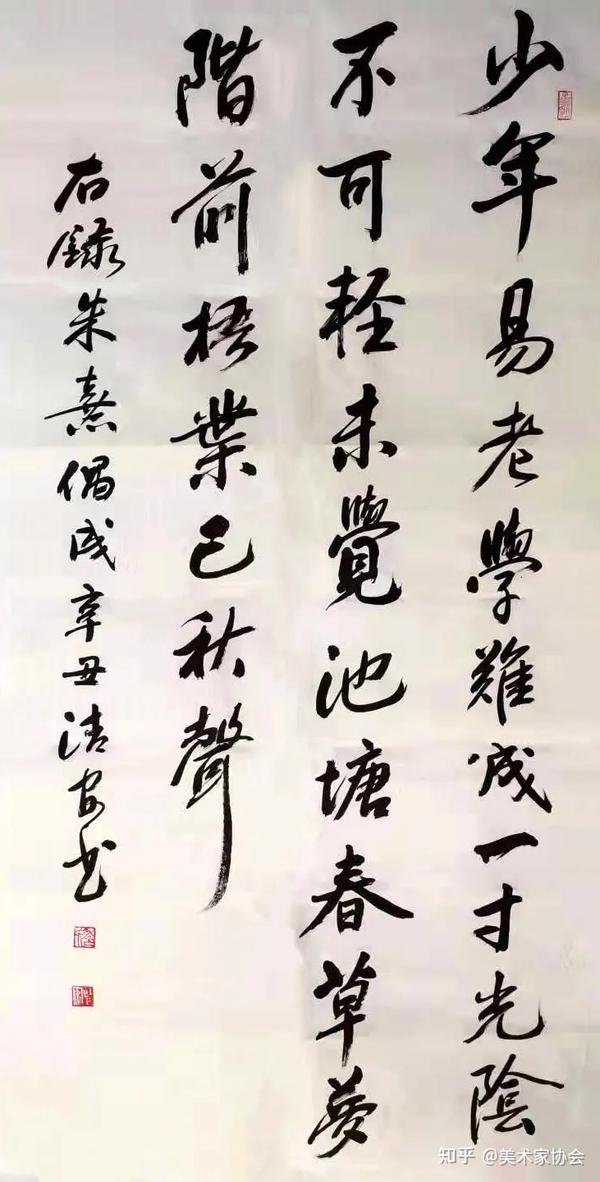 少年易老學難成一寸光陰
不可輕未覺池塘春草夢
階前梧葉已秋聲
右錄朱熹偶成辛丑清安书
知乎 @美术家协会